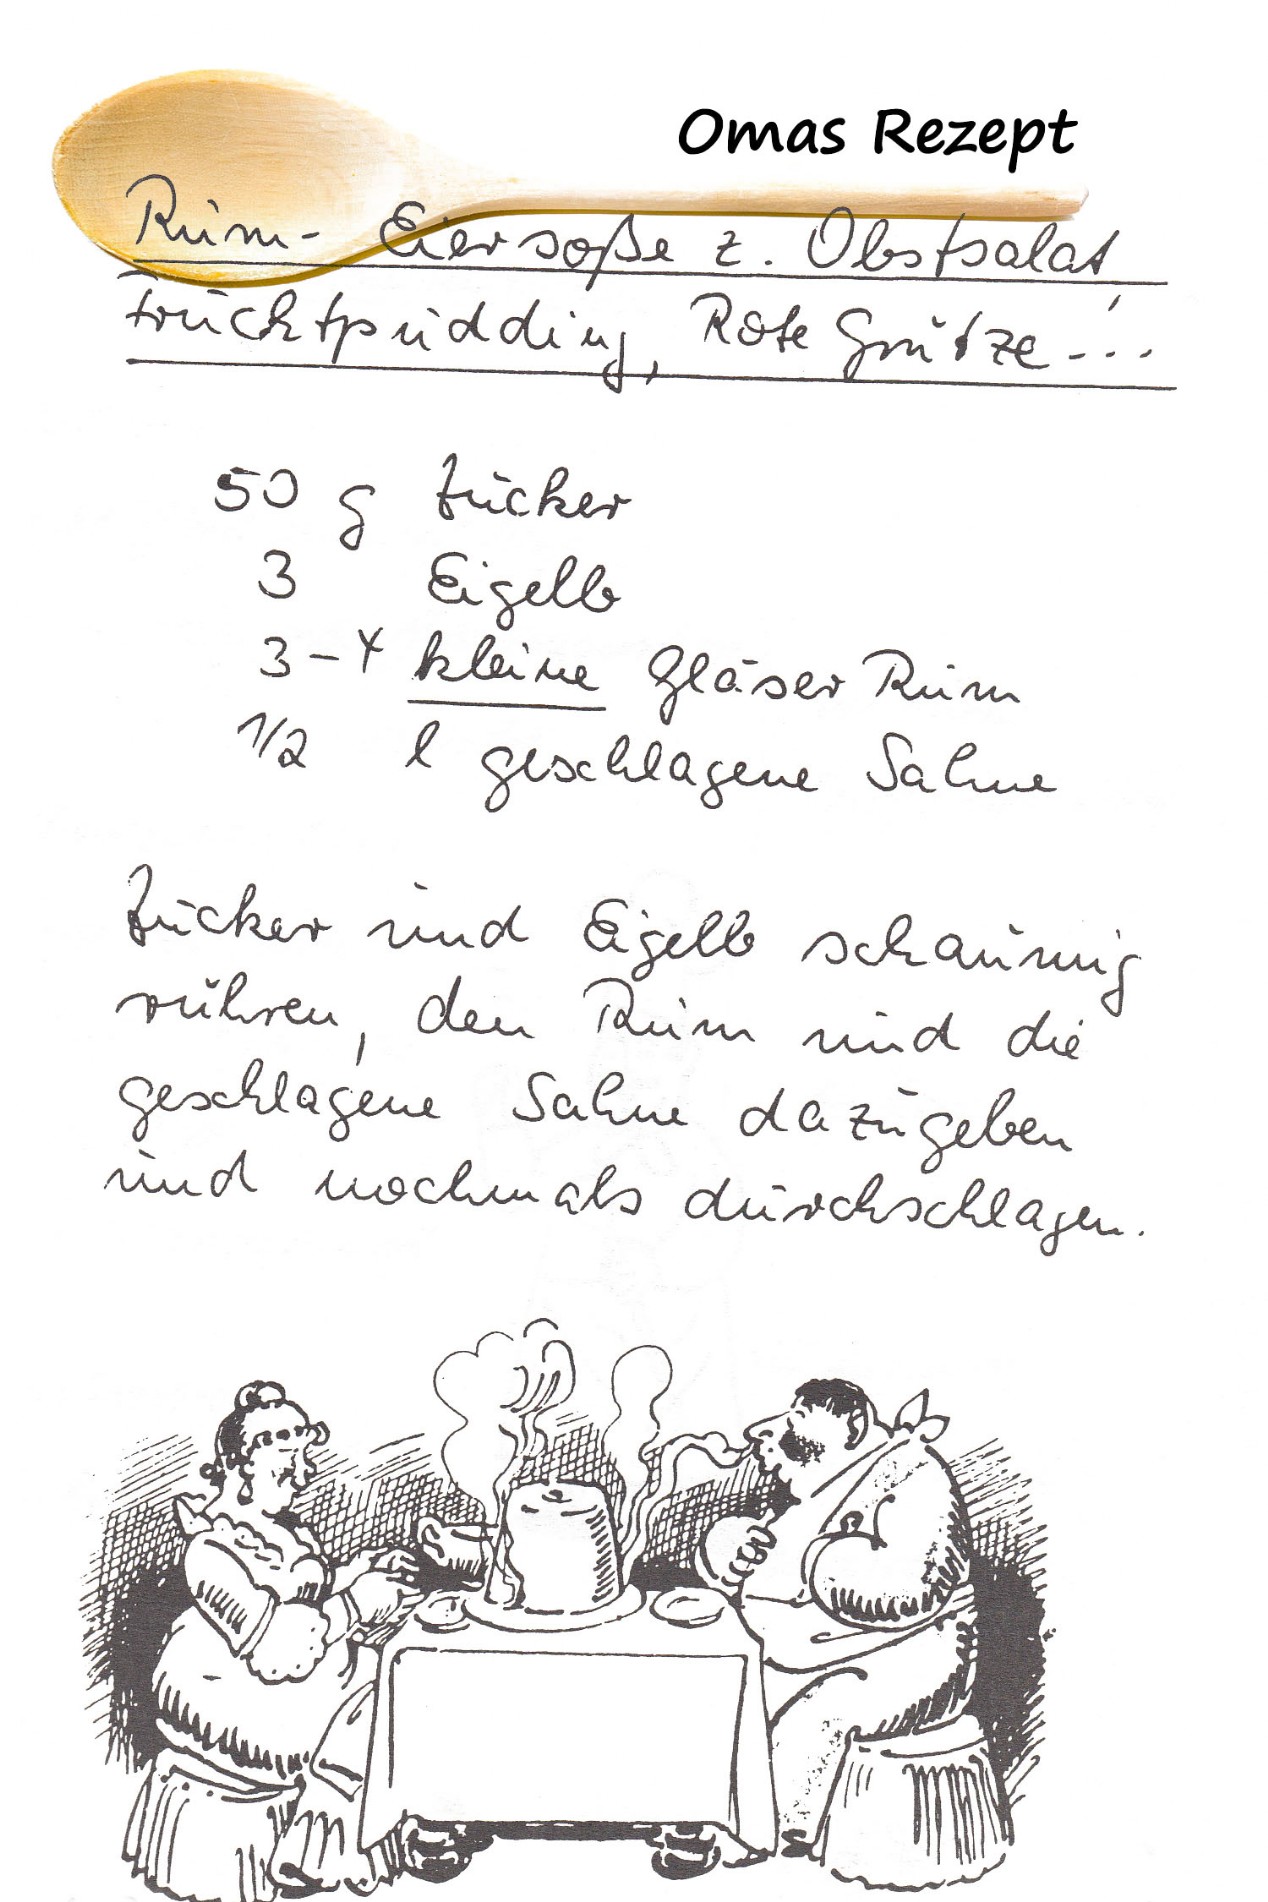 Omas Rezept
Rum- Eiersoße z. Obstsalat,
Fruchtpudding, Rote Grütze...
50 g Zucker
3 Eigelb
3-4 kleine Gläser Rum
1/2 l geschlagene Sahne
Zucker und Eigelb schaumig
rühren, den Rum und die
geschlagene Sahne dazugeben
und nochmals durchschlagen.